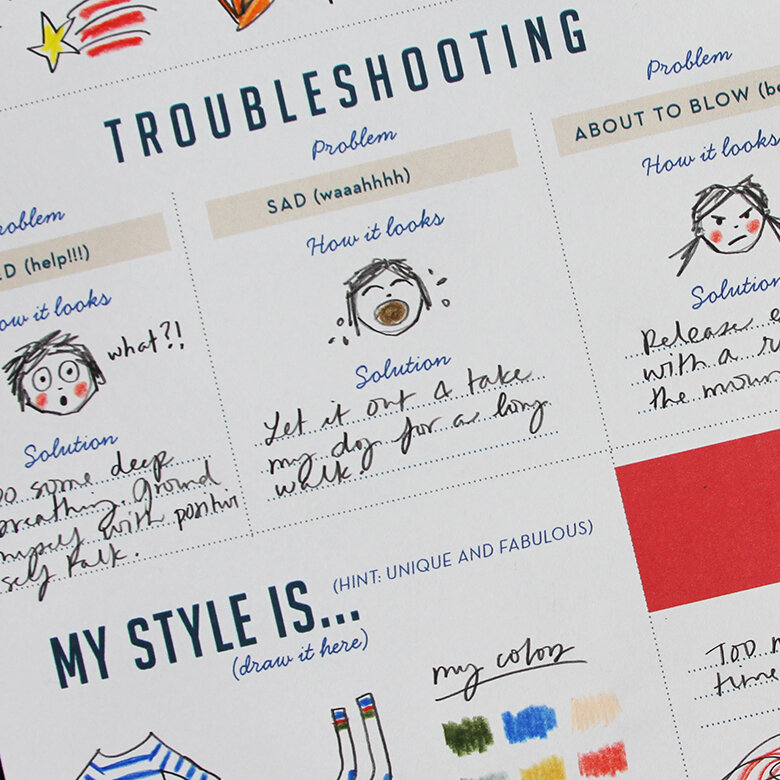 TROUBLESHOOTING
Problem
(help!!!)
How it looks
what?!
Solution
some deep
breathing. Ground
myself with positive
self talk.
Problem
SAD (waaahhhh)
How it looks
Solution
Let it out & take
my dog for a long
walk.
Problem
ABOUT TO BLOW
How it looks
Solution
Release
with a
the
MY STYLE IS...
(HINT: UNIQUE AND FABULOUS)
(draw it here)
my colors
Too
time